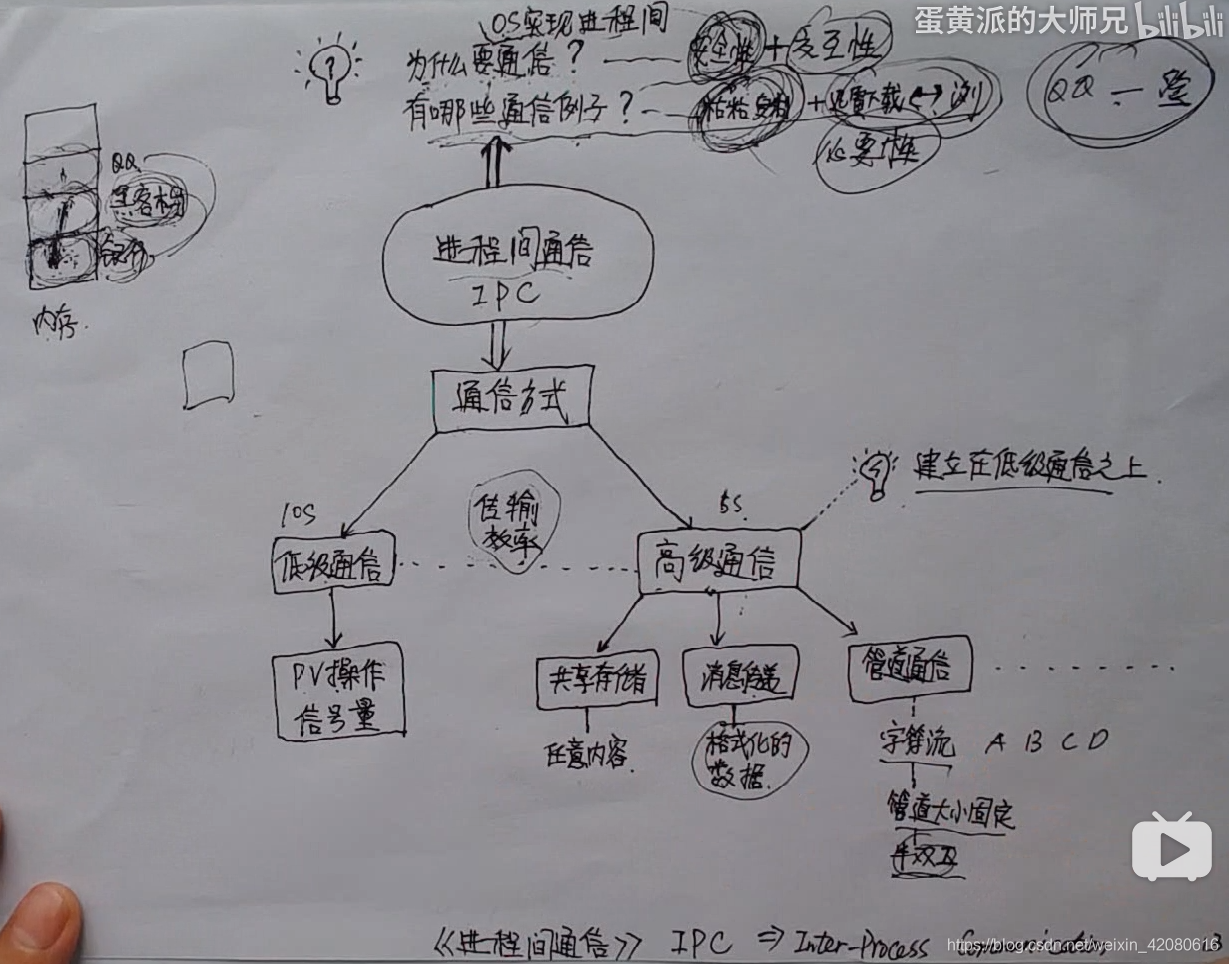 蛋黄派的大师兄 bilibili
OS实现进程间
为什么要通信? 安全性+交互性
有哪些通信例子? +迅雷下载↔
必要性
QQ
QQ
黑客
内存.
进程间通信
IPC
通信方式
传输
效率
10S
5S
建立在低级通信之上
低级通信
高级通信
PV操作
信号量
共享存储
消息传送
管道通信
任意内容.
格式化的
数据.
字符流 A B C D
管道大小固定
半双工
《进程间通信》 IPC ⇒ Inter-Process Communication
https://blog.csdn.net/weixin_42080616
3